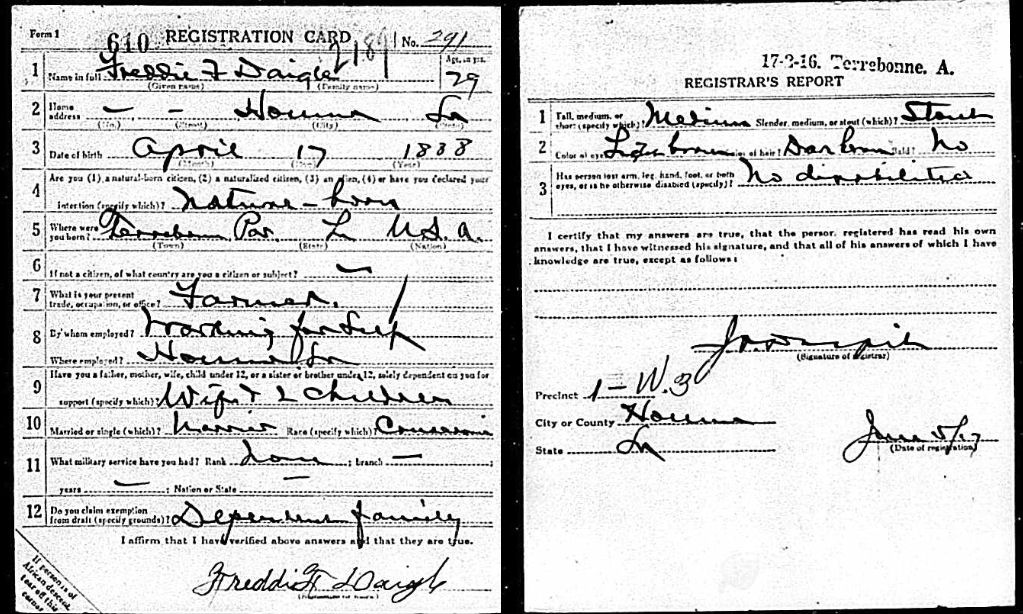 Form 1 610 REGISTRATION CARD No. 291
1 Name in full Freddie F Daigle Age, in yrs. 29
(Given name) (Family name)
2 Home address — — Houma La
(No.) (Street) (City) (State)
3 Date of birth April 17 1888
(Month) (Day) (Year)
4 Are you (1) a natural-born citizen, (2) a naturalized citizen, (3) an alien, (4) or have you declared your
intention (specify which)? Nature-born
5 Where were you born? Terrebonn Par La U.S.A.
(Town) (State) (Nation)
6 If not a citizen, of what country are you a citizen or subject? —
7 What is your present trade, occupation, or office? Farmer.
8 By whom employed? Working for Self
Where employed? Houma La
9 Have you a father, mother, wife, child under 12, or a sister or brother under 12, solely dependent on you for
support (specify which)? Wife & 2 children
10 Married or single (which)? Married Race (specify which)?
11 What military service have you had? Rank None ; branch — ;
years — ; Nation or State —
12 Do you claim exemption from draft (specify grounds)? Dependent family
I affirm that I have verified above answers and that they are true.
Freddie F Daigle
If person is of
African descent,
tear off this
corner
17-3-16. Terrebonne, A.
REGISTRAR'S REPORT
1 Tall, medium, or short (specify which)? Medium Slender, medium, or stout (which)? Stout
2 Color of eyes? of hair? Bald? No
3 Has person lost arm, leg, hand, foot, or both eyes, or is he otherwise disabled (specify)? No disabilities
I certify that my answers are true, that the person registered has read his own
answers, that I have witnessed his signature, and that all of his answers of which I have
knowledge are true, except as follows:
(Signature of registrar)
Precinct 1-W.3
City or County Houma
State La
June 5/17
(Date of registration)